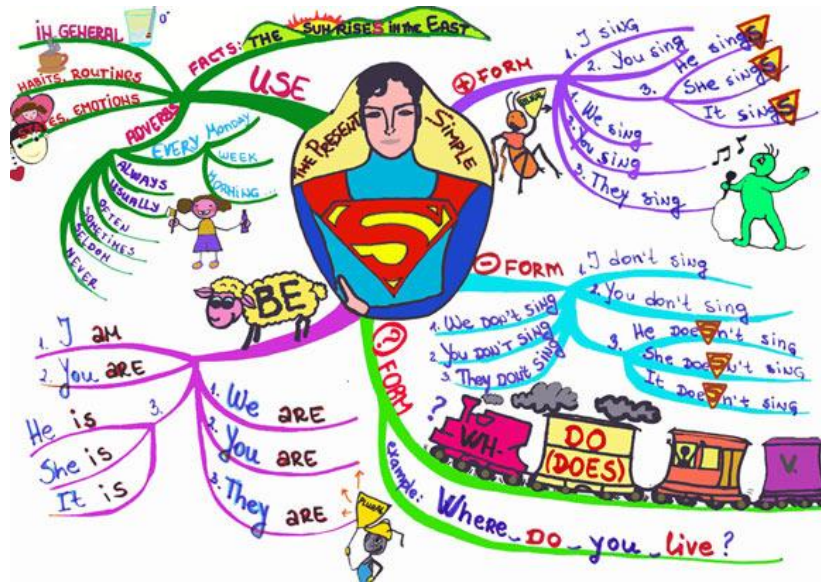 THE PRESENT SIMPLE
USE
FACTS: THE SUN RISES in the EAST
IN GENERAL
0°
HABITS, ROUTINES
STATES, EMOTIONS
ADVERBS
EVERY Monday
WEEK
MORNING...
ALWAYS
USUALLY
OFTEN
SOMETIMES
SELDOM
NEVER
+ FORM
1. I sing
2. You sing
3. He singS
She singS
It singS
1. We sing
2. You sing
3. They sing
- FORM
1. I don't sing
2. You don't sing
3. He DOESn't sing
She DOESn't sing
It DOESn't sing
1. We DON'T SING
2. YOU DON'T SING
3. They DON'T SING
? FORM
?
WH-
DO
(DOES)
V.
example: Where_DO_you_live?
BE
1. I AM
2. You ARE
3. He is
She is
It is
1. We ARE
2. You ARE
3. They ARE
PLURAL